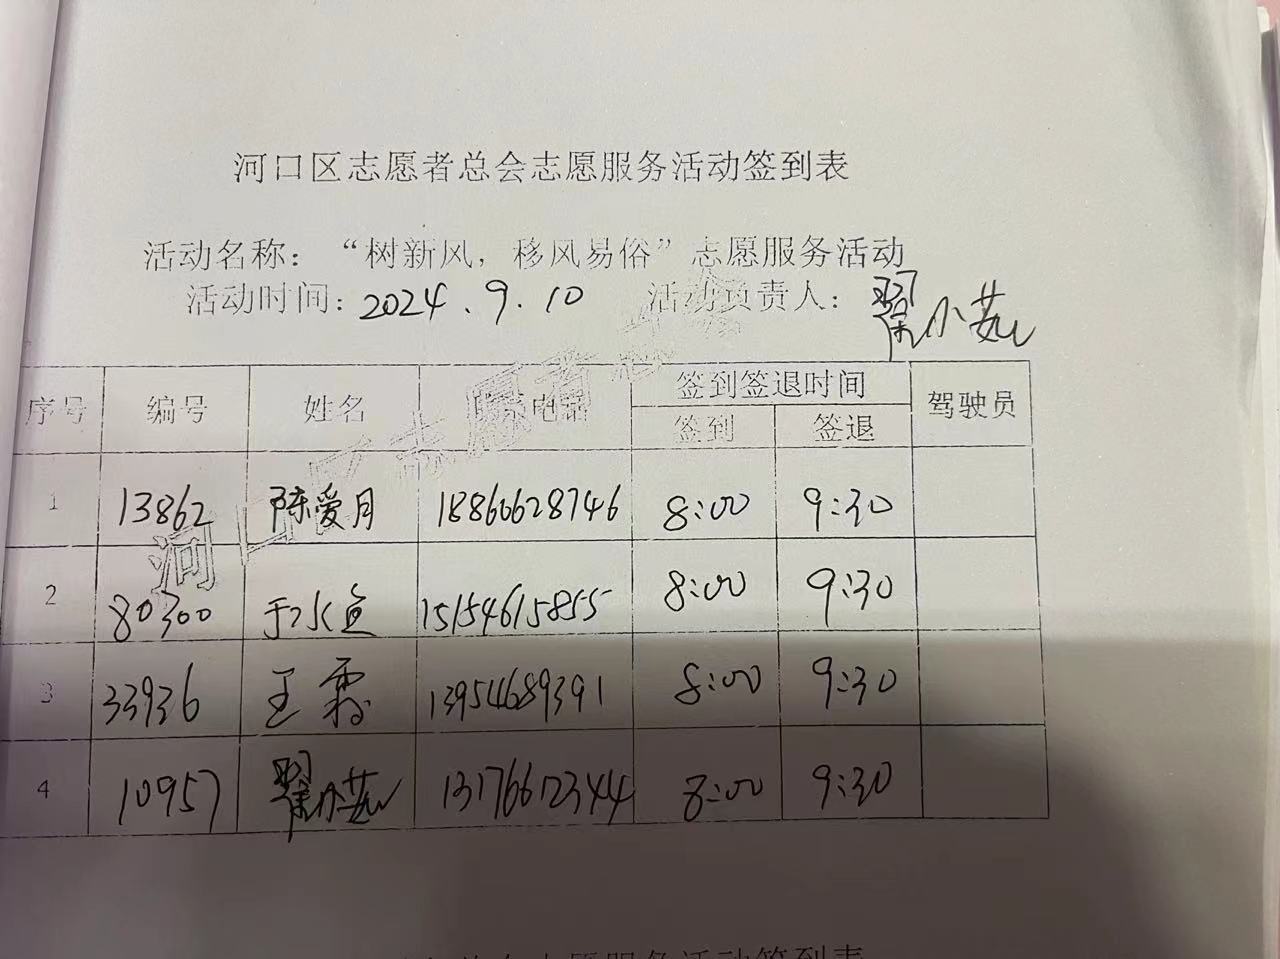 河口区志愿者总会志愿服务活动签到表
活动名称：“树新风，移风易俗”志愿服务活动
活动时间：2024.9.10 活动负责人：翟小茹
序号 编号 姓名 联系电话 签到签退时间 驾驶员
签到 签退
1 13862 陈爱月 18860628746 8:00 9:30
2 80300 于冰鱼 15154615855 8:00 9:30
3 33936 王霞 13954689391 8:00 9:30
4 10957 翟小茹 13176612344 8:00 9:30
河口区志愿者总会
志愿服务活动签到表